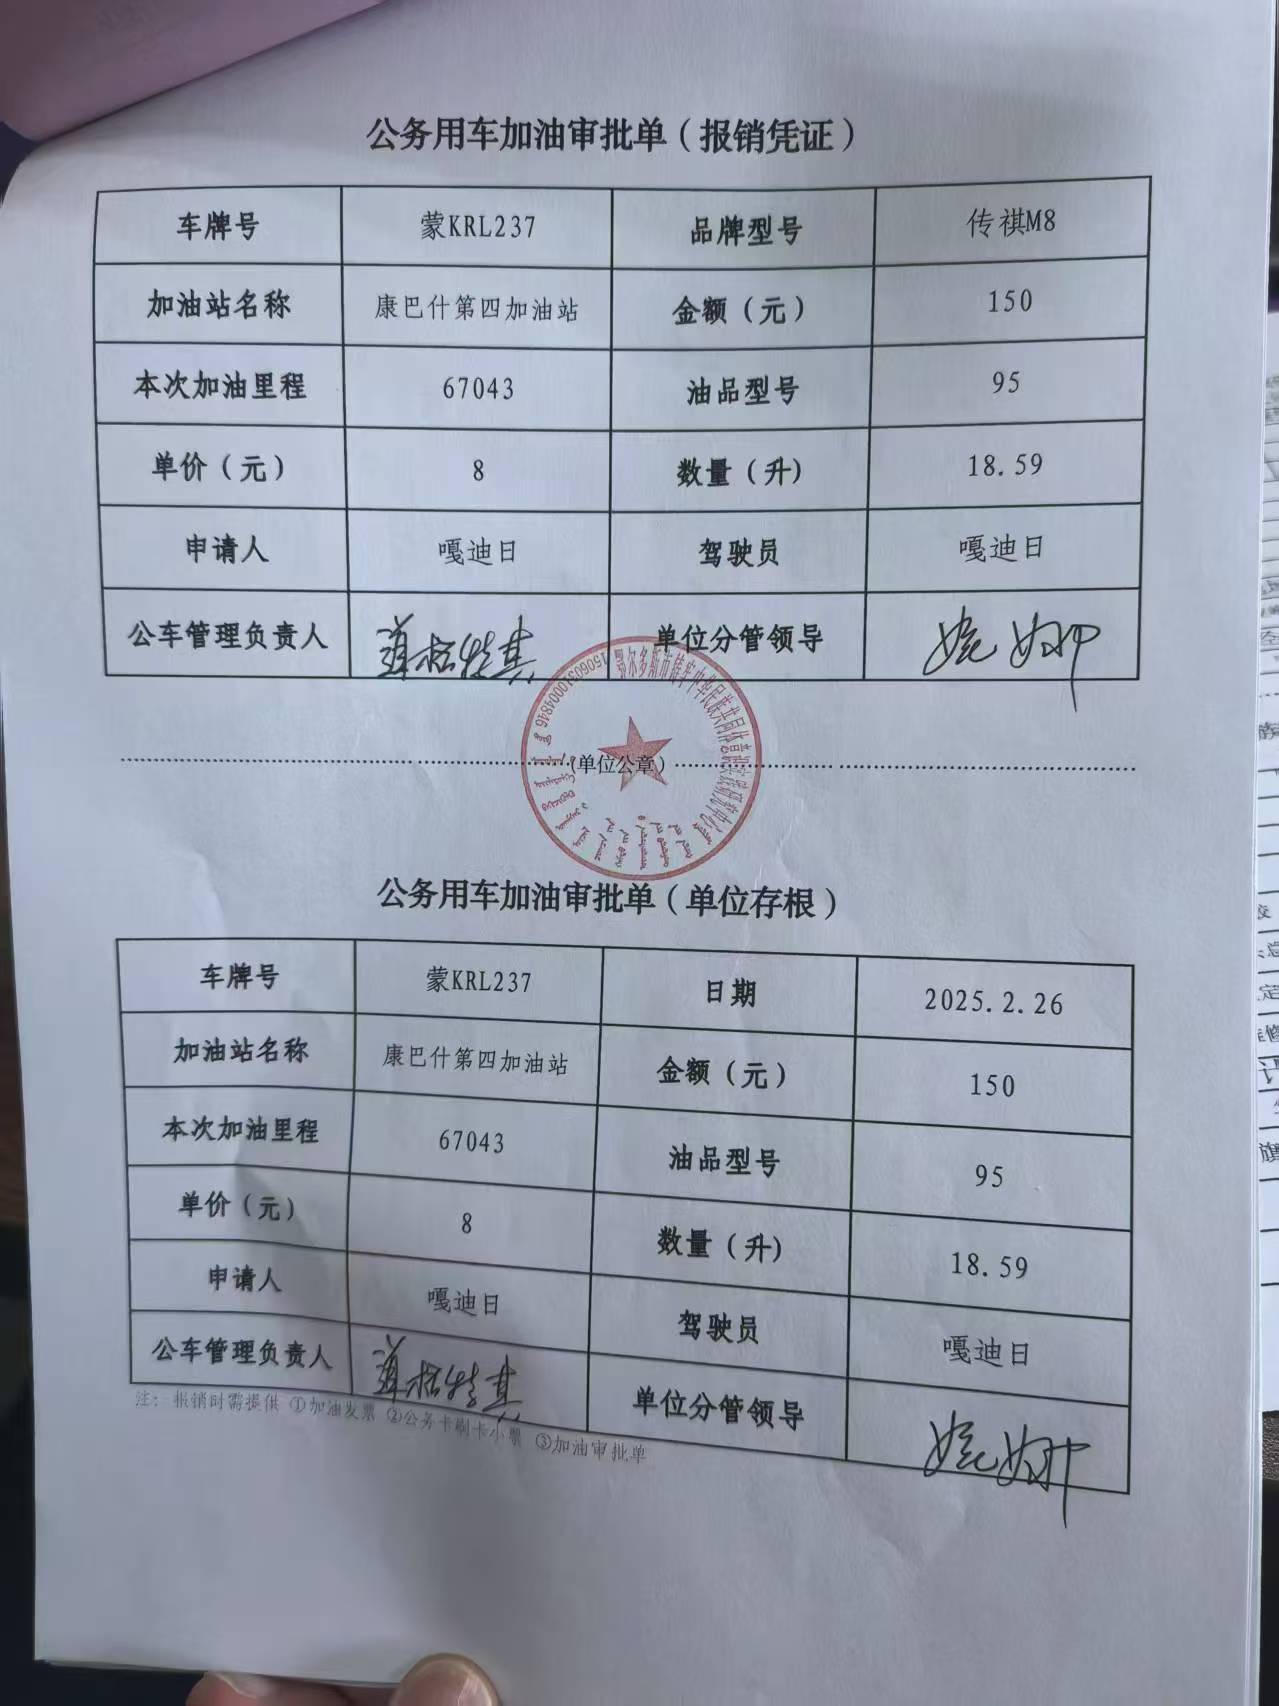 公务用车加油审批单（报销凭证）
车牌号 蒙KRL237 品牌型号 传祺M8
加油站名称 康巴什第四加油站 金额（元） 150
本次加油里程 67043 油品型号 95
单价（元） 8 数量（升） 18.59
申请人 嘎迪日 驾驶员 嘎迪日
公车管理负责人 单位分管领导
15060310004846
（单位公章）
公务用车加油审批单（单位存根）
车牌号 蒙KRL237 日期 2025.2.26
加油站名称 康巴什第四加油站 金额（元） 150
本次加油里程 67043 油品型号 95
单价（元） 8 数量（升） 18.59
申请人 嘎迪日 驾驶员 嘎迪日
公车管理负责人 单位分管领导
注：报销时需提供 ①加油发票 ②公务卡刷卡小票 ③加油审批单